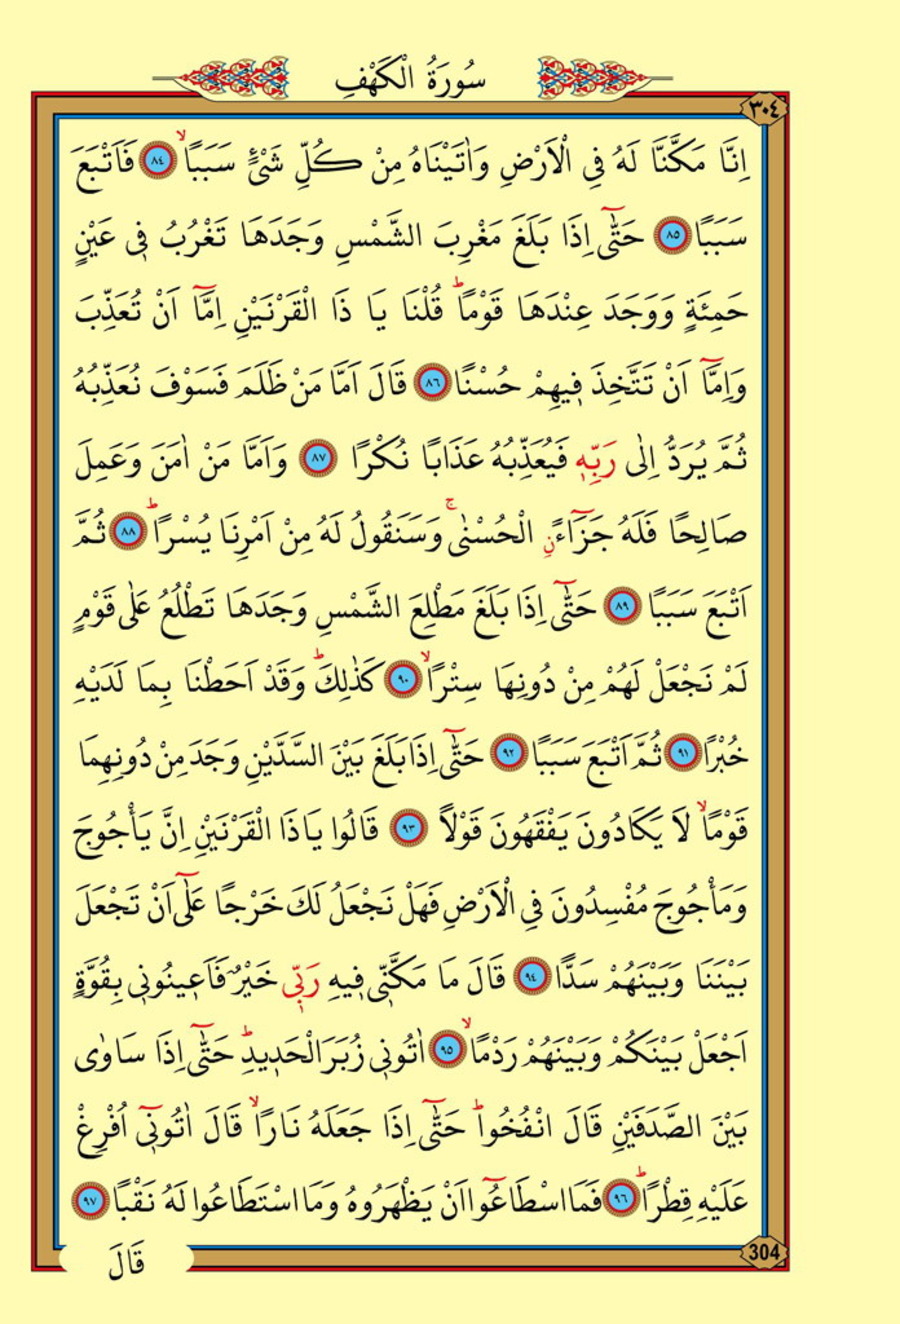 سُورَةُ الْكَهْفِ
٣٠٤
اِنَّا مَكَّنَّا لَهُ فِي الْاَرْضِ وَاٰتَيْنَاهُ مِنْ كُلِّ شَيْءٍ سَبَبًاۙ ٨٤ فَاَتْبَعَ
سَبَبًا ٨٥ حَتّٰٓى اِذَا بَلَغَ مَغْرِبَ الشَّمْسِ وَجَدَهَا تَغْرُبُ ف۪ي عَيْنٍ
حَمِئَةٍ وَوَجَدَ عِنْدَهَا قَوْمًاۜ قُلْنَا يَا ذَا الْقَرْنَيْنِ اِمَّٓا اَنْ تُعَذِّبَ
وَاِمَّٓا اَنْ تَتَّخِذَ ف۪يهِمْ حُسْنًا ٨٦ قَالَ اَمَّا مَنْ ظَلَمَ فَسَوْفَ نُعَذِّبُهُ
ثُمَّ يُرَدُّ اِلٰى رَبِّه۪ فَيُعَذِّبُهُ عَذَابًا نُكْرًا ٨٧ وَاَمَّا مَنْ اٰمَنَ وَعَمِلَ
صَالِحًا فَلَهُ جَزَٓاءًۨ الْحُسْنٰىۚ وَسَنَقُولُ لَهُ مِنْ اَمْرِنَا يُسْرًاۜ ٨٨ ثُمَّ
اَتْبَعَ سَبَبًا ٨٩ حَتّٰٓى اِذَا بَلَغَ مَطْلِعَ الشَّمْسِ وَجَدَهَا تَطْلُعُ عَلٰى قَوْمٍ
لَمْ نَجْعَلْ لَهُمْ مِنْ دُونِهَا سِتْرًاۙ ٩٠ كَذٰلِكَۜ وَقَدْ اَحَطْنَا بِمَا لَدَيْهِ
خُبْرًا ٩١ ثُمَّ اَتْبَعَ سَبَبًا ٩٢ حَتّٰٓى اِذَا بَلَغَ بَيْنَ السَّدَّيْنِ وَجَدَ مِنْ دُونِهِمَا
قَوْمًاۙ لَا يَكَادُونَ يَفْقَهُونَ قَوْلًا ٩٣ قَالُوا يَا ذَا الْقَرْنَيْنِ اِنَّ يَأْجُوجَ
وَمَأْجُوجَ مُفْسِدُونَ فِي الْاَرْضِ فَهَلْ نَجْعَلُ لَكَ خَرْجًا عَلٰٓى اَنْ تَجْعَلَ
بَيْنَنَا وَبَيْنَهُمْ سَدًّا ٩٤ قَالَ مَا مَكَّنّ۪ي ف۪يهِ رَبّ۪ي خَيْرٌ فَاَع۪ينُون۪ي بِقُوَّةٍ
اَجْعَلْ بَيْنَكُمْ وَبَيْنَهُمْ رَدْمًاۙ ٩٥ اٰتُون۪ي زُبَرَ الْحَد۪يدِۜ حَتّٰٓى اِذَا سَاوٰى
بَيْنَ الصَّدَفَيْنِ قَالَ انْفُخُواۜ حَتّٰٓى اِذَا جَعَلَهُ نَارًاۙ قَالَ اٰتُون۪ٓي اُفْرِغْ
عَلَيْهِ قِطْرًاۜ ٩٦ فَمَا اسْطَاعُٓوا اَنْ يَظْهَرُوهُ وَمَا اسْتَطَاعُوا لَهُ نَقْبًا ٩٧
304
قَالَ